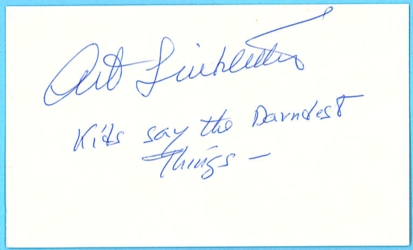 Art Linkletter
Kids say the Darndest
Things —